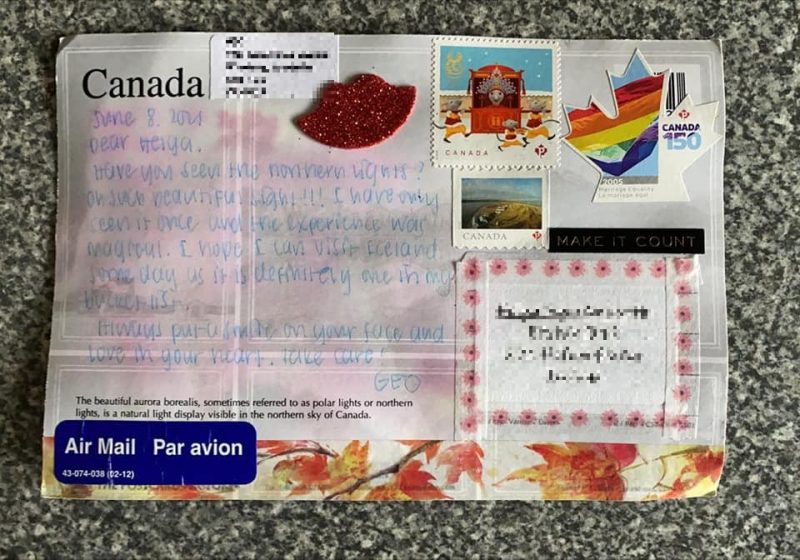 Canada
June 8. 2021
Dear Helga,
Have you seen the northern lights?
Oh such beautiful sight!!! I have only
seen it once and the experience was
magical. I hope I can visit Iceland
some day as it is definitely one in my
bucket list.
Always put a smile on your face and
love in your heart. Take care!
GEO
The beautiful aurora borealis, sometimes referred to as polar lights or northern
lights, is a natural light display visible in the northern sky of Canada.
Air Mail Par avion
43-074-038 (02-12)
CANADA
P
CANADA
P
CANADA
150
P
2005
Marriage Equality
Le mariage égal
MAKE IT COUNT